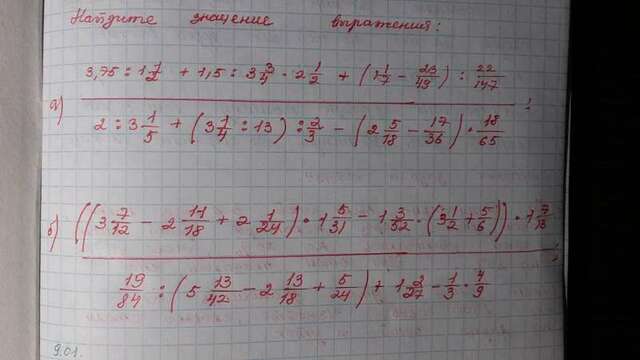 Найдите значение выражения:
а) (3,75 : 1 1/2 + 1,5 : 3 3/4 · 2 1/2 + (1 1/7 - 23/49) : 22/147) / (2 : 3 1/5 + (3 1/4 : 13) : 2/3 - (2 5/18 - 17/36) · 18/65) ;
б) (((3 7/12 - 2 11/18 + 2 1/24) · 1 5/31 - 1 3/52 · (3 1/2 + 5/6)) · 1 7/13) / (19/84 : (5 13/42 - 2 13/18 + 5/24) + 1 2/27 - 1/3 · 4/9) ;
9.01.